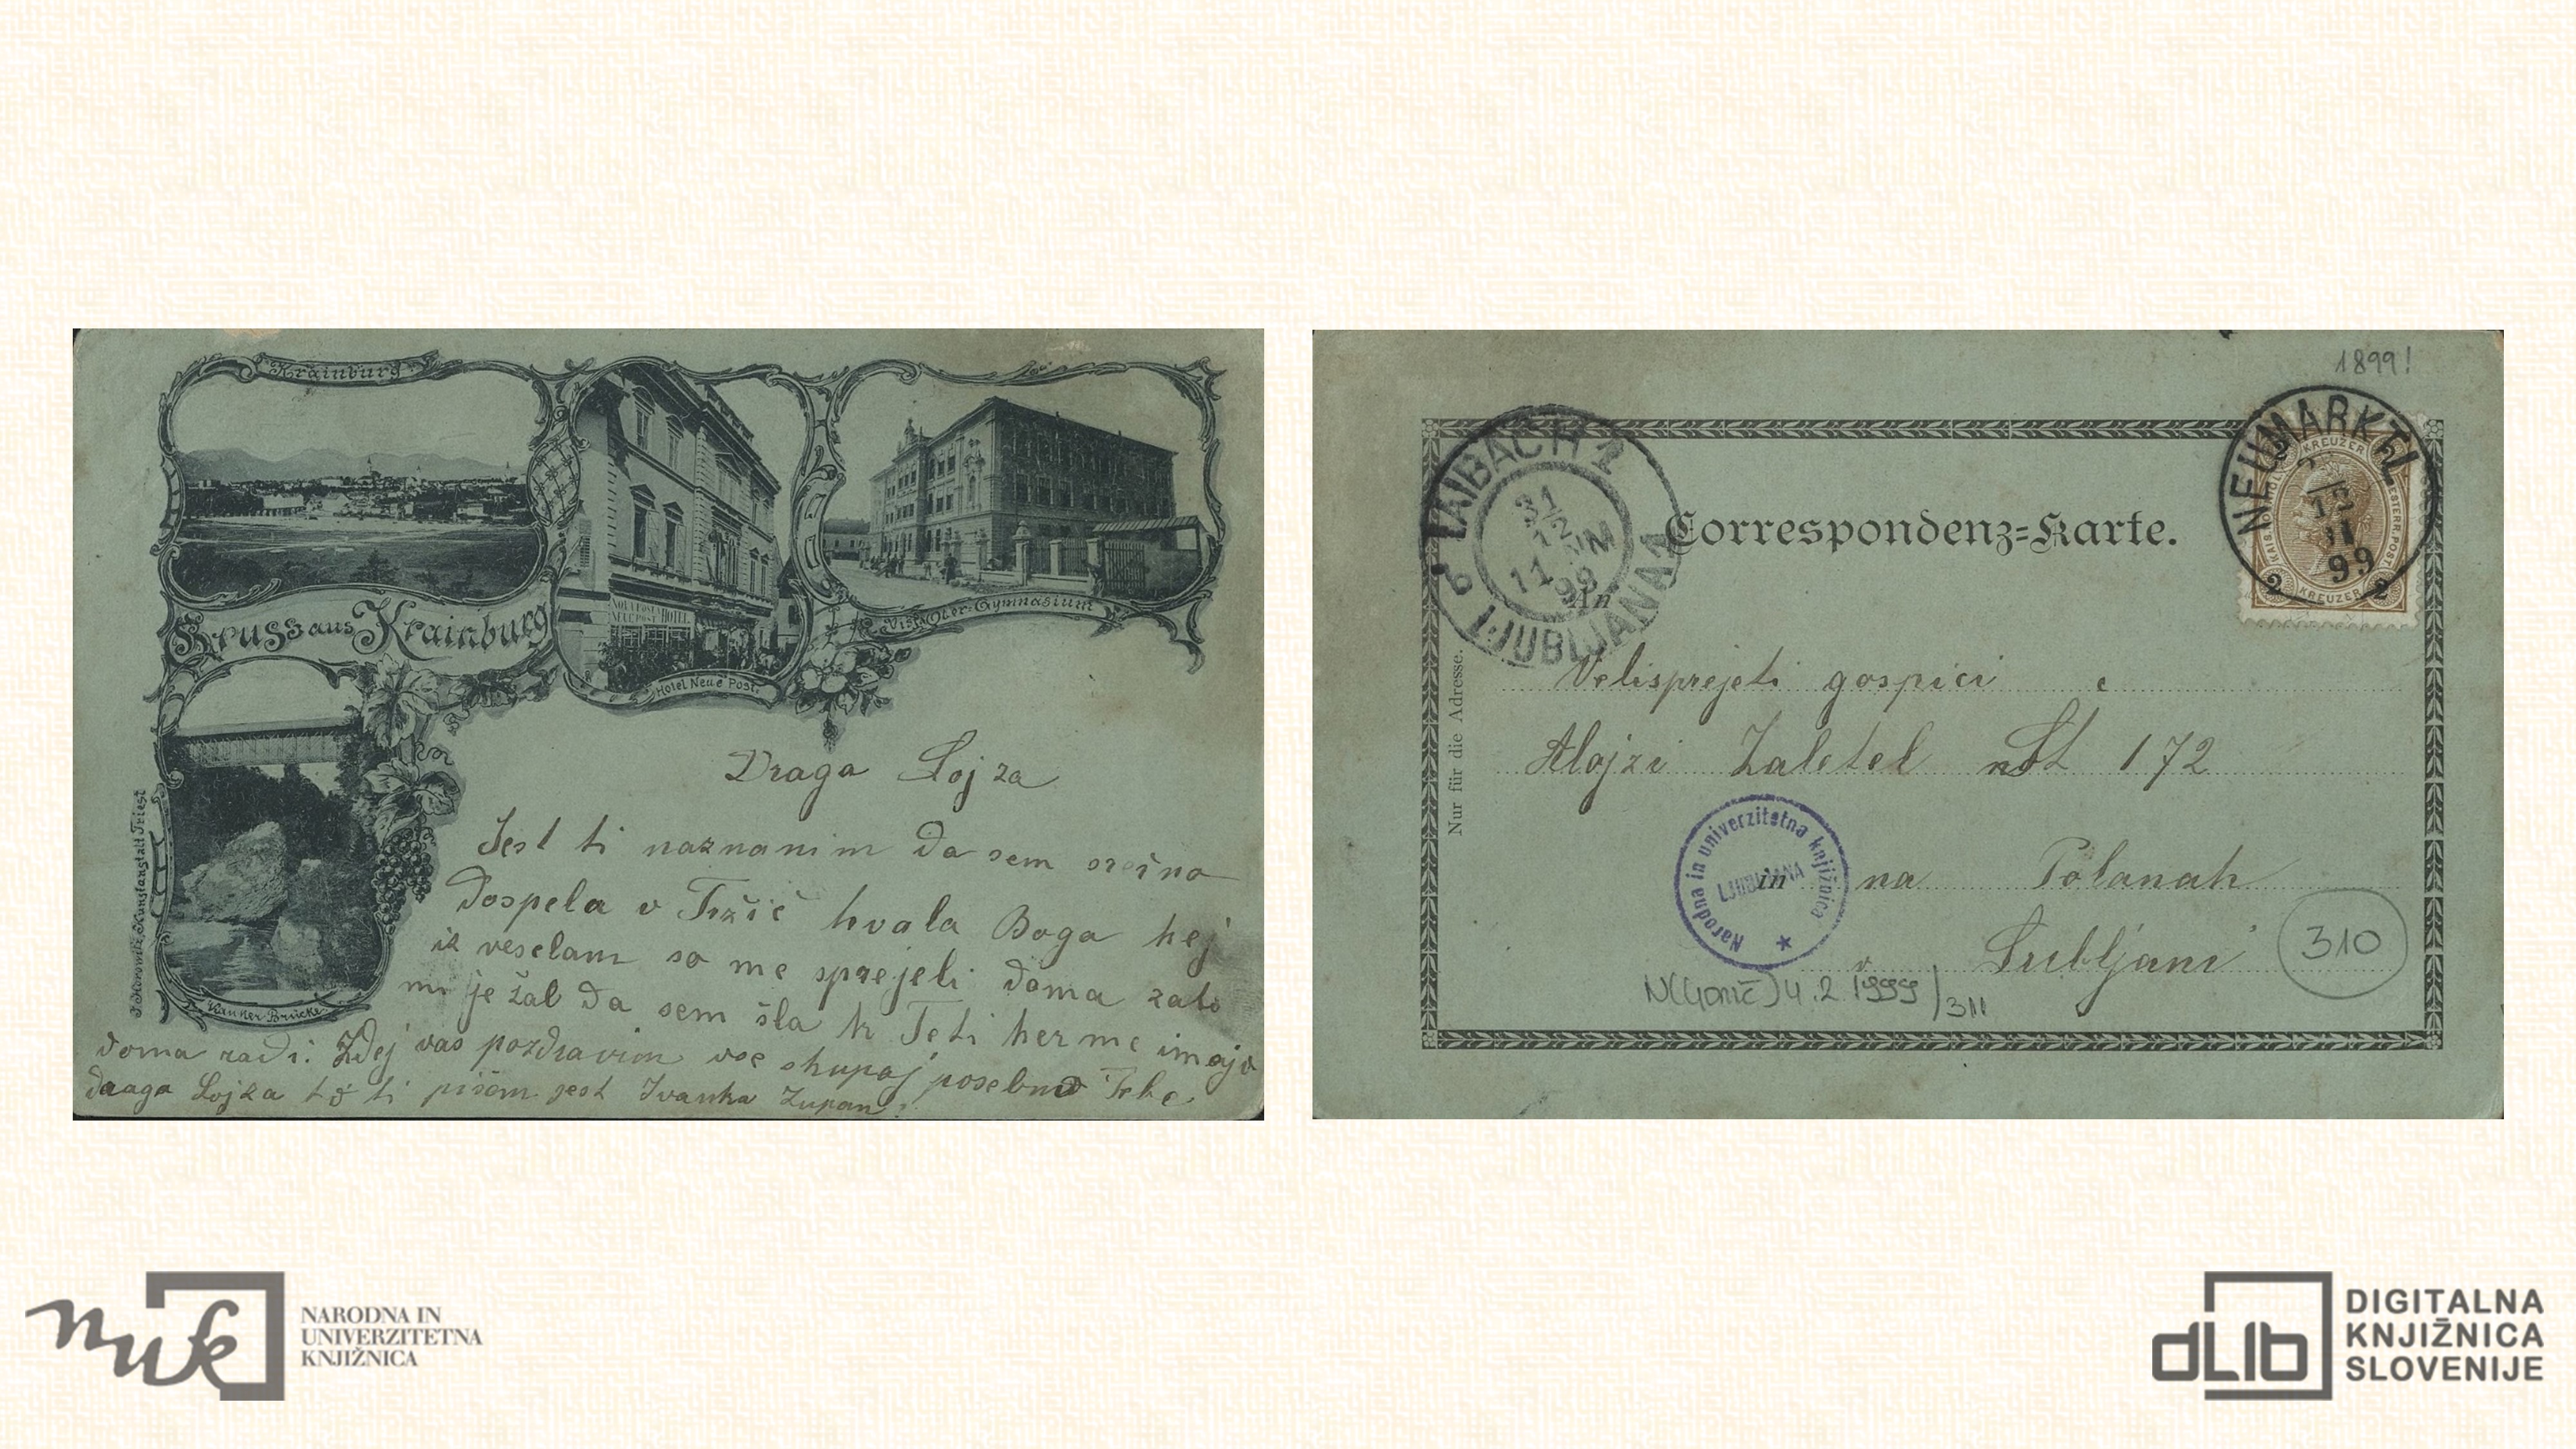 Krainburg
Gruss aus Krainburg
NOVA POSTA HOTEL
NEUE POST
Hotel Neue Post.
Ober-Gymnasium
Kanker Brücke
Kunstanstalt Triest
Draga Lojza
Jest ti naznanim da sem srečno
dospela v Tržič hvala Boga kej
iz veselam so me sprejeli doma zato
mi je žal da sem šla k Teti ker me imajo
doma radi. Zdej vas pozdravim vse skupaj posebno Tebe
draga Lojza to ti pišem jest Ivanka Zupan.
1899!
LAIBACH 1
31
12
11
99
LJUBLJANA 1
NEUMARKTL
12
11
99
KREUZER
2 KREUZER 2
Correspondenz=Karte.
An
Nur für die Adresse.
Velisprejeti gospici
Alojzi Zaletel št 172
in na Polanah
v Lubljani
Narodna in univerzitetna knjižnica
LJUBLJANA
310
4.2.1999/311
nuk
NARODNA IN
UNIVERZITETNA
KNJIŽNICA
dLib
DIGITALNA
KNJIŽNICA
SLOVENIJE